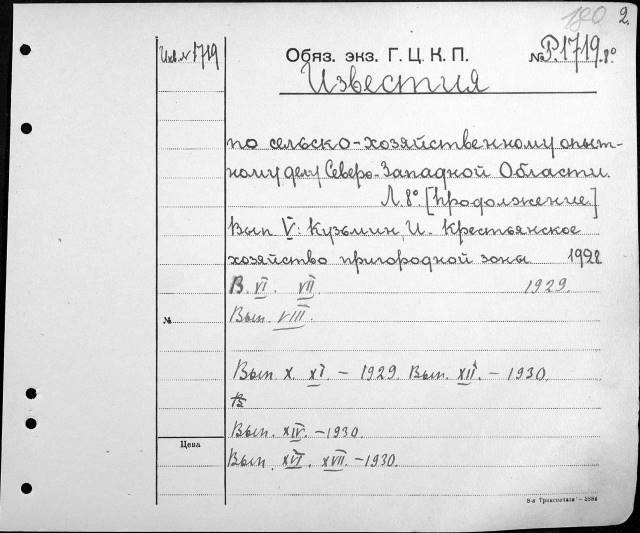 180 2.
Инв. № 1719
Обяз. экз. Г. Ц. К. П. № Р.1719.8°
Известия
по сельско-хозяйственному опыт-
ному делу Северо-Западной Области.
Л. 8°. [продолжение]
Вып V: Кузьмин, И. Крестьянское
хозяйство пригородной зоны 1928
В. VI. VII 1929.
№ Вып. VIII.
Вып. X. XI. – 1929. Вып. XII. – 1930.
В
Вып. XIV. – 1930.
Цена
Вып. XVI. XVII. – 1930.